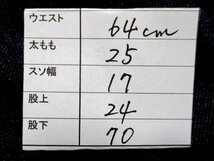 ウエスト 64cm
太もも 25
スソ幅 17
股上 24
股下 70